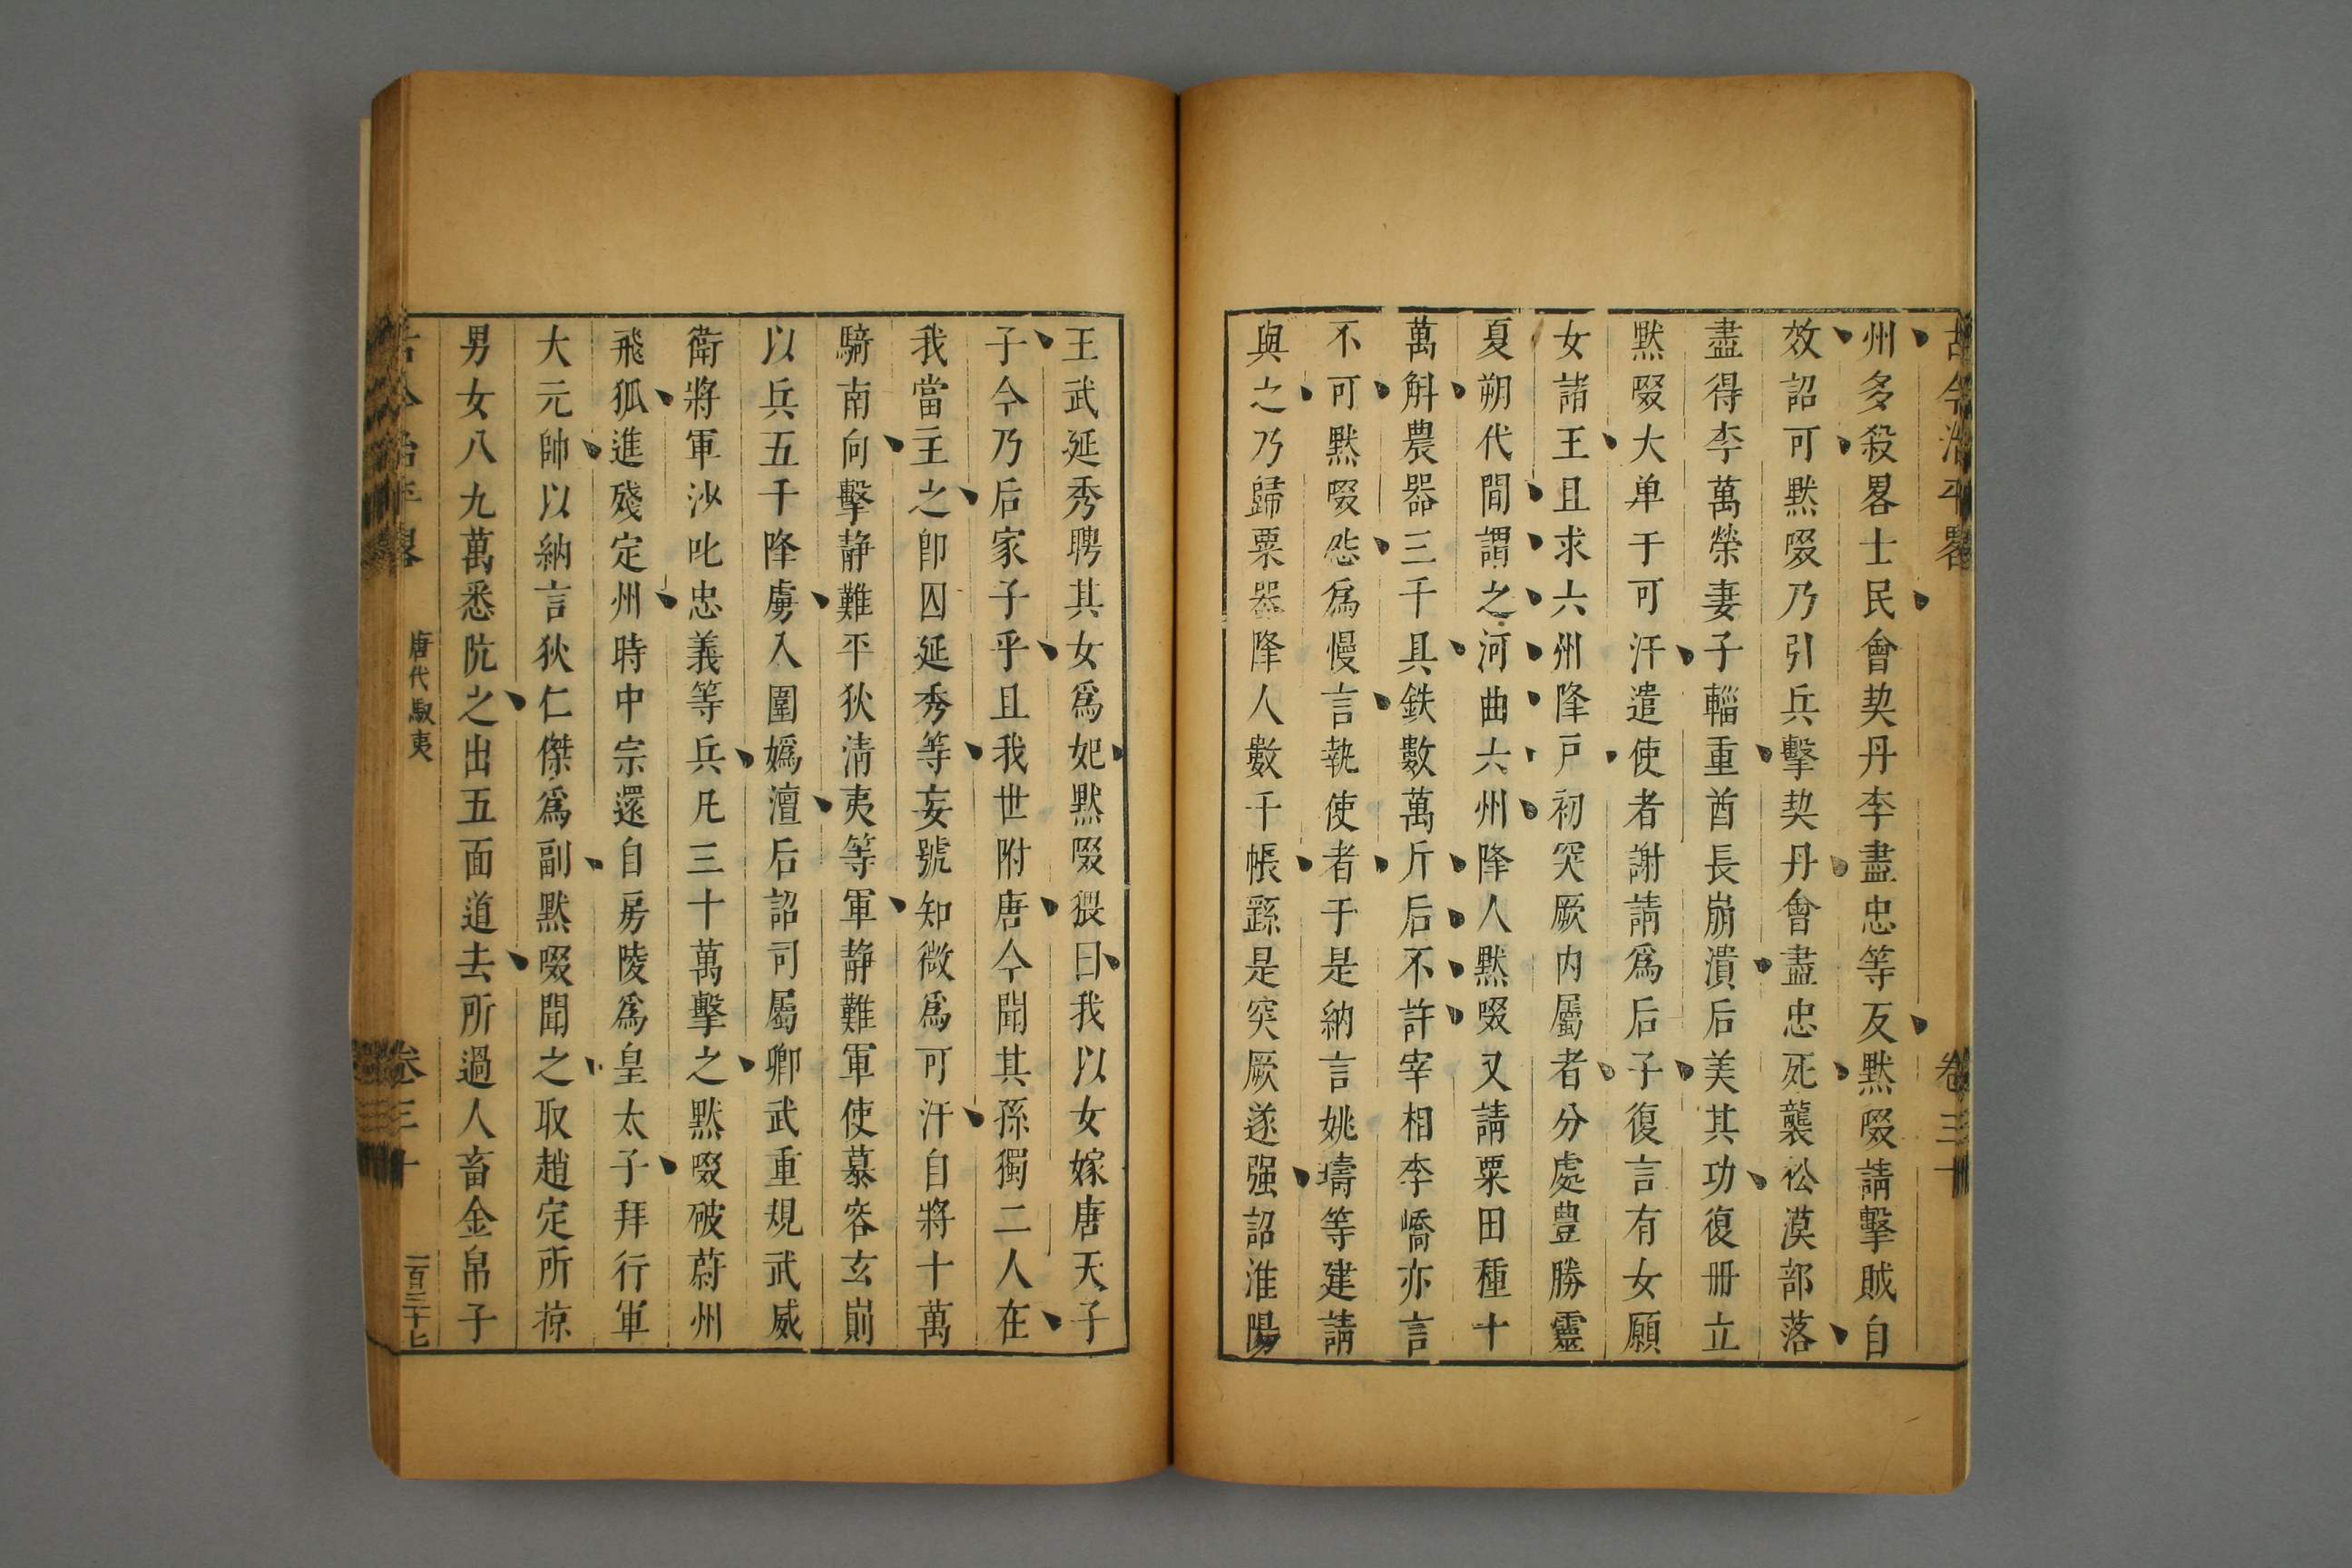 古今治平畧
卷三十
州多殺畧士民會契丹李盡忠等反黙啜請擊賊自
效詔可黙啜乃引兵擊契丹會盡忠死襲松漠部落
盡得李萬榮妻子輜重酋長崩潰后美其功復冊立
黙啜大单于可汗遣使者謝請爲后子復言有女願
女諸王且求六州降戶初突厥内屬者分處豊勝靈
夏朔代間謂之河曲六州降人黙啜又請粟田種十
萬斛農器三千具鉄數萬斤后不許宰相李嶠亦言
不可黙啜怨爲慢言執使者于是納言姚璹等建請
與之乃歸粟器降人數千帳繇是突厥遂强詔淮陽
王武延秀聘其女爲妃黙啜猥曰我以女嫁唐天子
子今乃后家子乎且我世附唐今聞其孫獨二人在
我當主之卽囚延秀等妄號知微爲可汗自將十萬
騎南向擊静難平狄淸夷等軍静難軍使慕容玄崱
以兵五千降虜入圍嬀澶后詔司屬卿武重規武威
衛將軍沙叱忠義等兵凡三十萬擊之黙啜破蔚州
飛狐進殘定州時中宗還自房陵爲皇太子拜行軍
大元帥以納言狄仁傑爲副黙啜聞之取趙定所掠
男女八九萬悉阬之出五面道去所過人畜金帛子
古今治平畧
唐代馭夷
卷三十
一百二十七